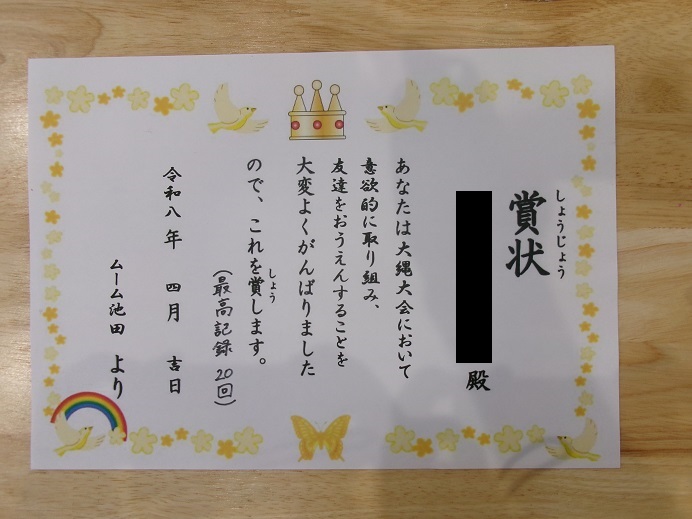 しょうじょう
賞状
殿
あなたは大縄大会において
意欲的に取り組み、
友達をおうえんすることを
大変よくがんばりました
ので、これを賞します。
しょう
(最高記録 20回)
令和八年 四月 吉日
ムーム池田 より